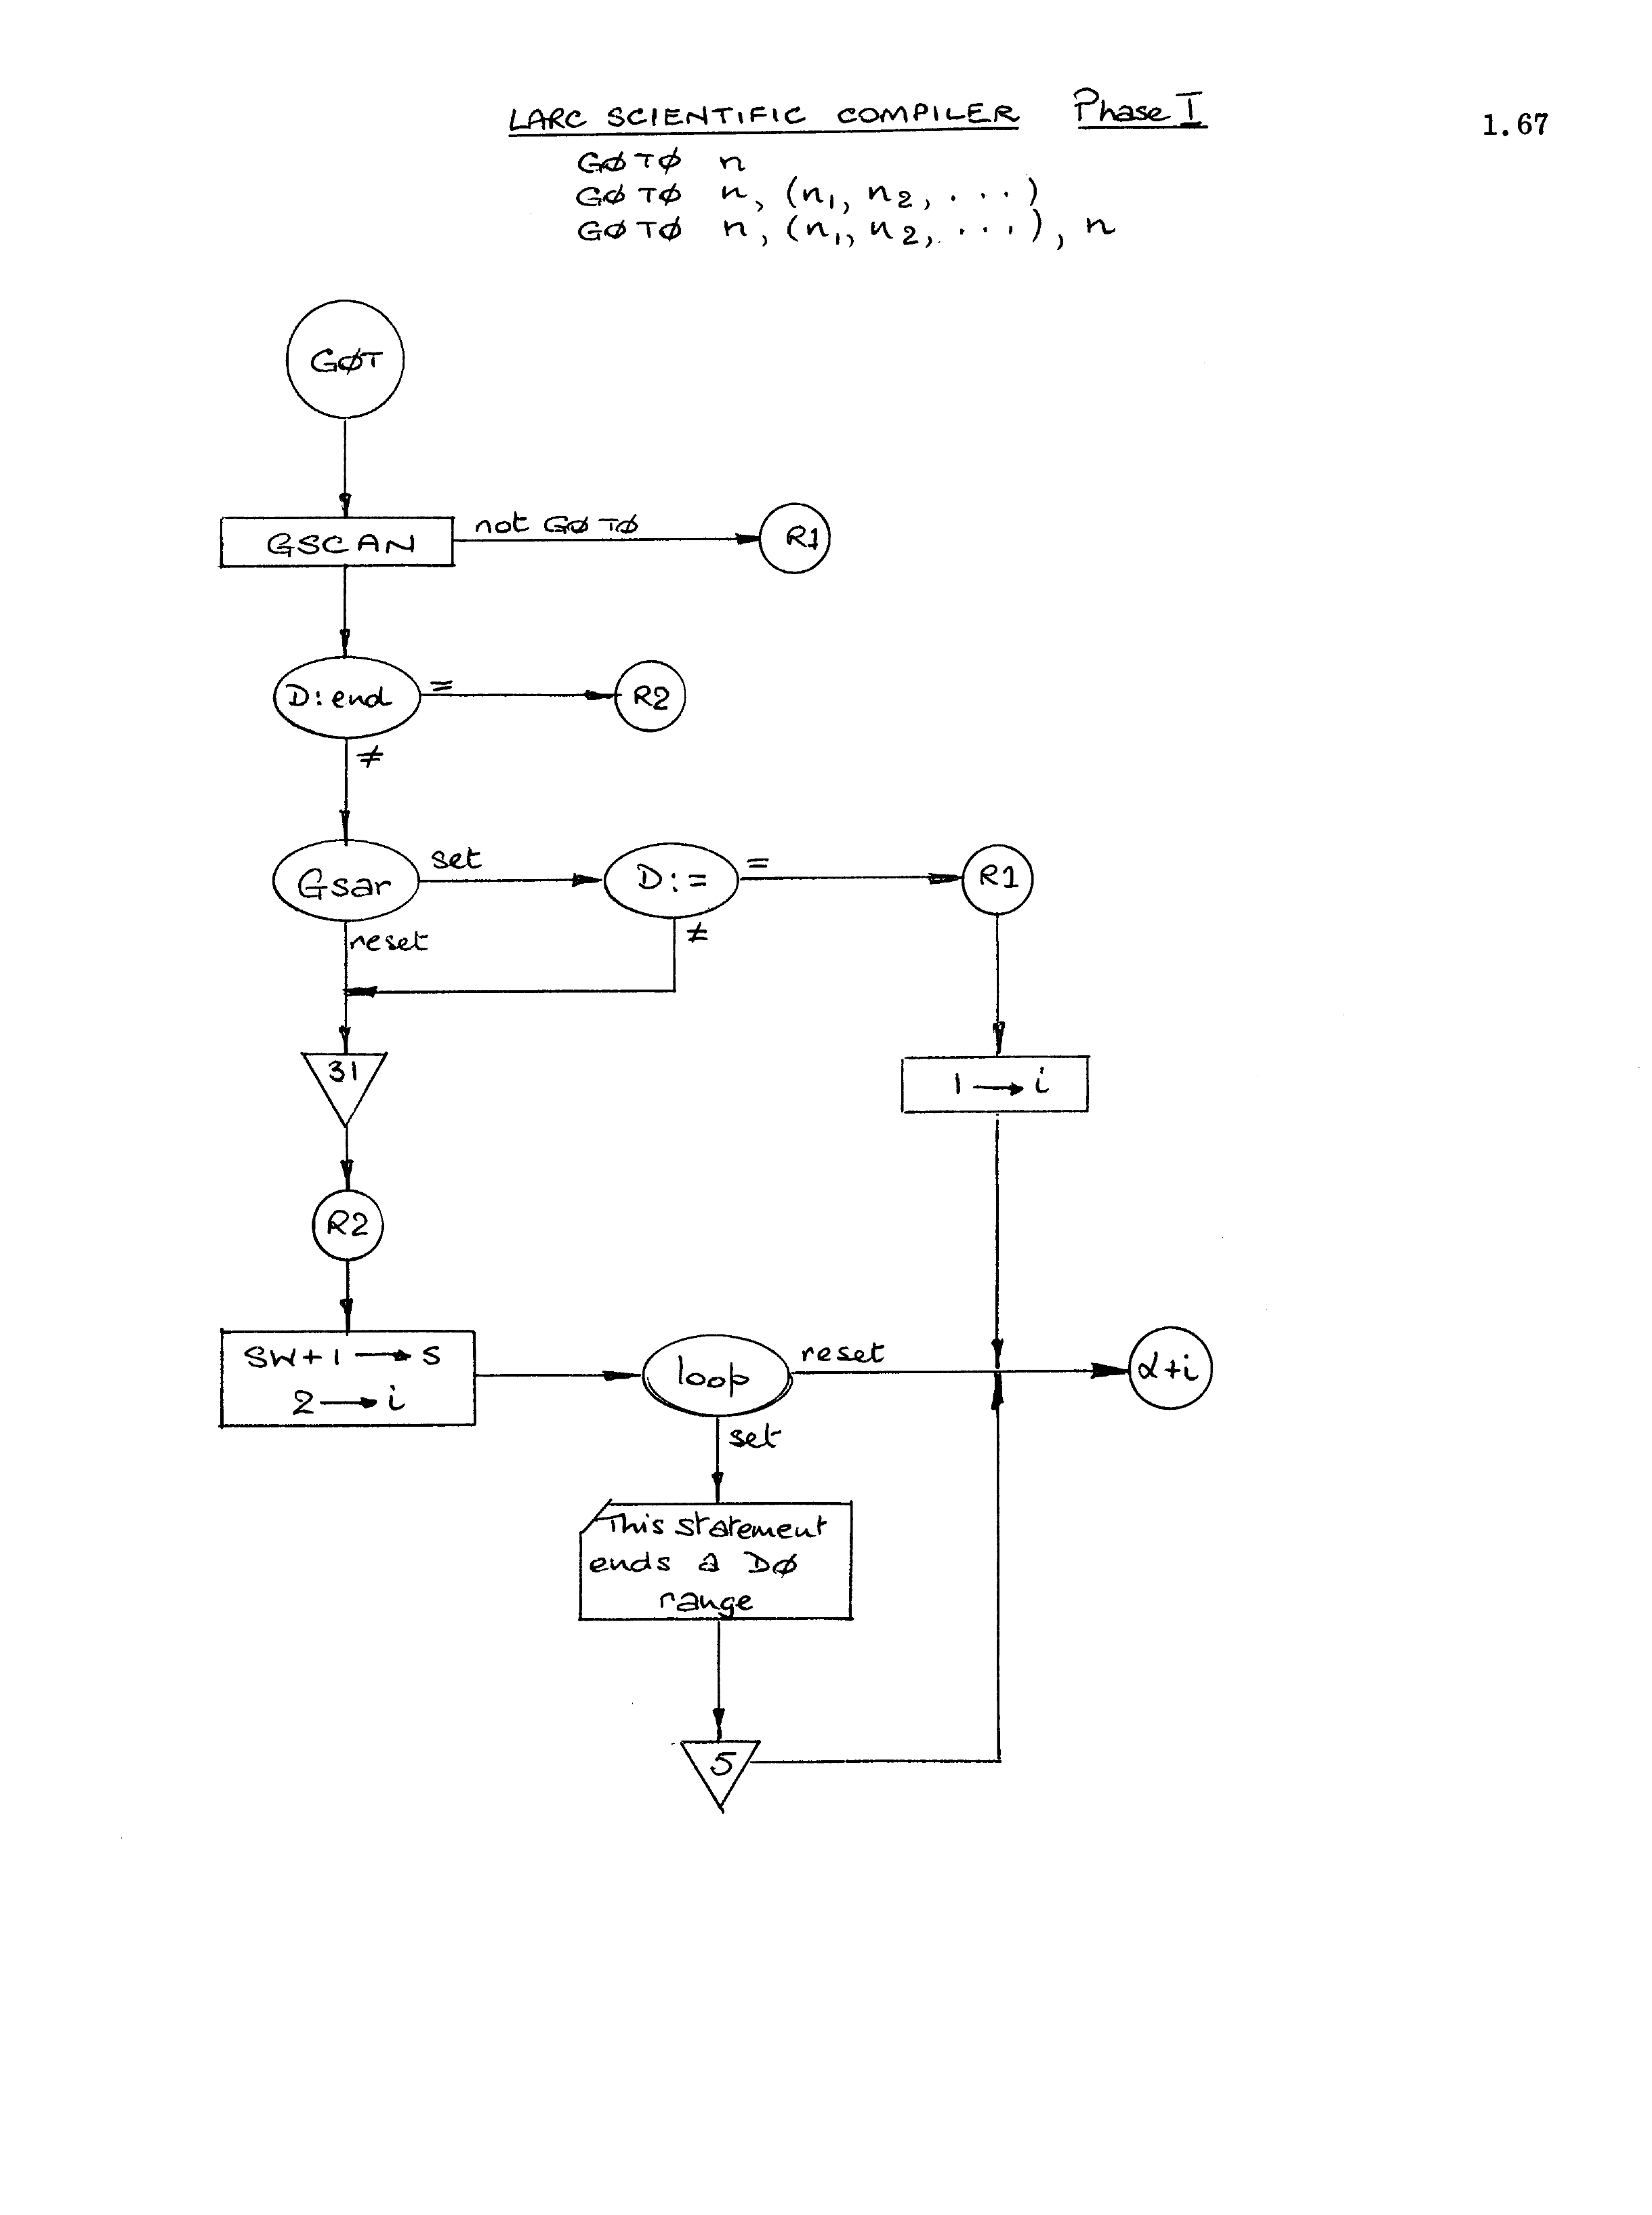 LARC SCIENTIFIC COMPILER Phase I
1.67
GØ TØ n
GØ TØ n, (n₁, n₂, ...)
GØ TØ n, (n₁, n₂, ...), n
GØT
GSCAN
not GØ TØ
R1
D:end
=
R2
≠
Gsar
set
D:=
=
R1
reset
≠
31
1 → i
R2
SW+1 → S
2 → i
loop
reset
α+i
set
This statement
ends a DØ
range
5